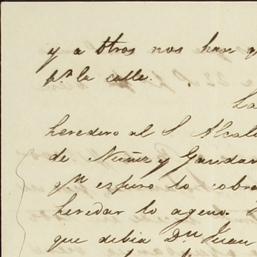 y a otros nos han q
pr. la calle.
La
heredero al S. Alcal
de Nuñez y Gandar
qn espero lo cobra
heredar lo ageno.
que debia Dn Juan